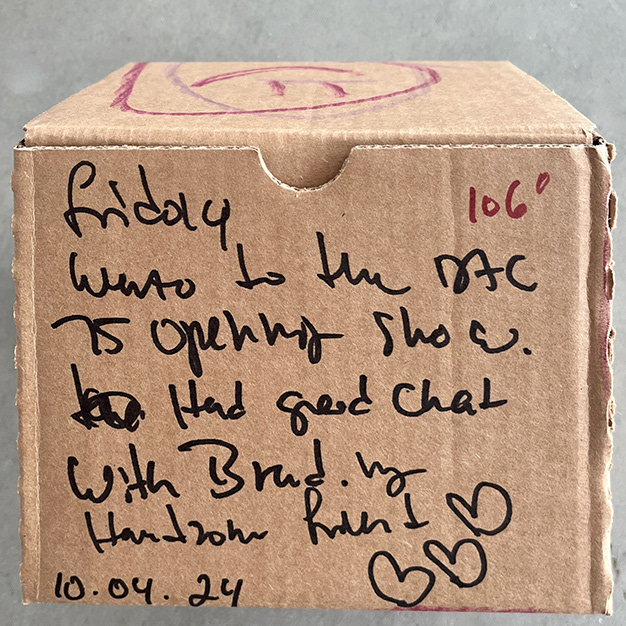 Friday
106°
Went to the DAC
75 opening show.
Had good chat
with Brad. my
Handsome friend
10.04.24